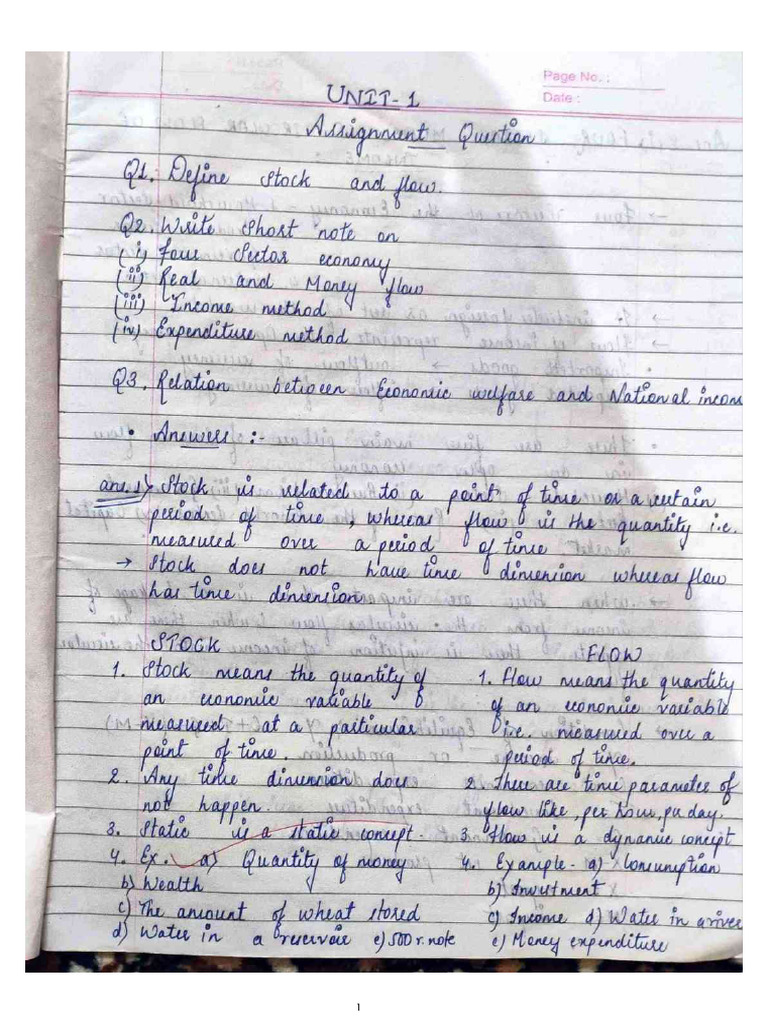 Page No. :
Date :
UNIT-1
Assignment Question
Q1. Define stock and flow.
Q2. Write short note on
(i) Four Sector economy
(ii) Real and Money flow
(iii) Income method
(iv) Expenditure method
Q3. Relation between Economic welfare and National incom
• Answers :-
ans.1) Stock is related to a point of time or a certain
period of time, whereas flow is the quantity i.e.
measured over a period of time
→ Stock does not have time dimension whereas flow
has time dimension
STOCK
1. Stock means the quantity of
an economic variable
measured at a particular
point of time.
2. Any time dimension does
not happen.
3. Static is a static concept.
4. Ex. a) Quantity of money
b) Wealth
c) The amount of wheat stored
d) Water in a reservoir e) 500 r. note
FLOW
1. Flow means the quantity
of an economic variable
i.e. measured over a
period of time.
2. There are time parameter of
flow like, per hour, per day.
3. Flow is a dynamic concept
4. Example - a) Consumption
b) Investment
c) Income d) Water in a river
e) Money expenditure
1